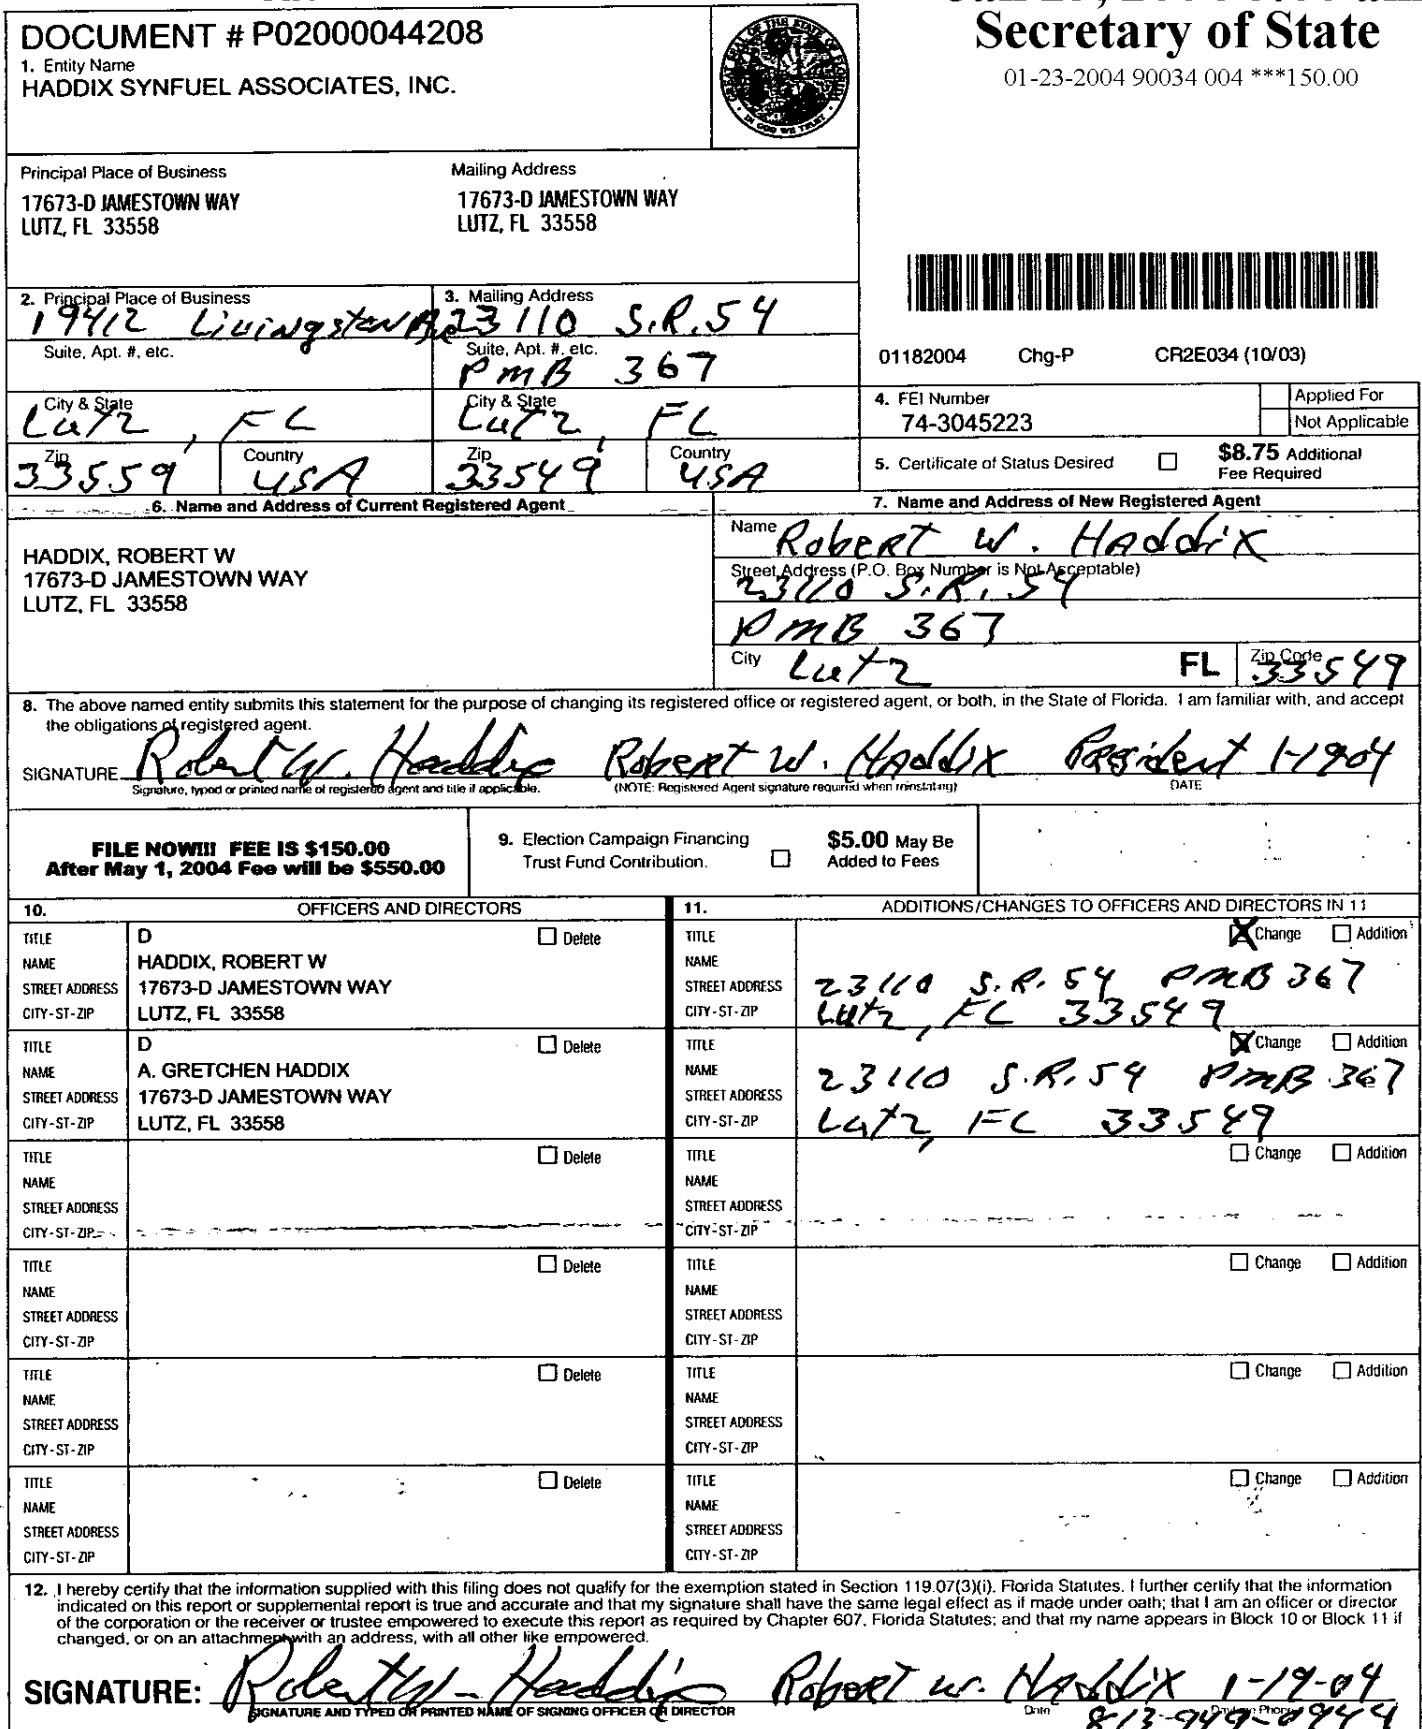 Secretary of State
01-23-2004 90034 004 ***150.00
DOCUMENT # P02000044208
1. Entity Name
HADDIX SYNFUEL ASSOCIATES, INC.
Principal Place of Business
17673-D JAMESTOWN WAY
LUTZ, FL 33558
Mailing Address
17673-D JAMESTOWN WAY
LUTZ, FL 33558
2. Principal Place of Business
19412 Livingston Ave
Suite, Apt. #, etc.
City & State
Lutz, FL
Zip
33559
Country
USA
3. Mailing Address
23110 S.R. 54
Suite, Apt. #, etc.
PMB 367
City & State
Lutz, FL
Zip
33549
Country
USA
01182004 Chg-P CR2E034 (10/03)
4. FEI Number
74-3045223
Applied For
Not Applicable
5. Certificate of Status Desired
$8.75 Additional
Fee Required
6. Name and Address of Current Registered Agent
HADDIX, ROBERT W
17673-D JAMESTOWN WAY
LUTZ, FL 33558
7. Name and Address of New Registered Agent
Name Robert W. Haddix
Street Address (P.O. Box Number is Not Acceptable)
23110 S.R. 54
PMB 367
City Lutz FL Zip Code 33549
8. The above named entity submits this statement for the purpose of changing its registered office or registered agent, or both, in the State of Florida. I am familiar with, and accept
the obligations of registered agent.
SIGNATURE Robert W. Haddix Robert W. Haddix President 1-19-04
Signature, typed or printed name of registered agent and title if applicable. (NOTE: Registered Agent signature required when reinstating) DATE
FILE NOW!!! FEE IS $150.00
After May 1, 2004 Fee will be $550.00
9. Election Campaign Financing
Trust Fund Contribution.
$5.00 May Be
Added to Fees
10. OFFICERS AND DIRECTORS
TITLE D Delete
NAME HADDIX, ROBERT W
STREET ADDRESS 17673-D JAMESTOWN WAY
CITY-ST-ZIP LUTZ, FL 33558
TITLE D Delete
NAME A. GRETCHEN HADDIX
STREET ADDRESS 17673-D JAMESTOWN WAY
CITY-ST-ZIP LUTZ, FL 33558
TITLE Delete
NAME
STREET ADDRESS
CITY-ST-ZIP
TITLE Delete
NAME
STREET ADDRESS
CITY-ST-ZIP
TITLE Delete
NAME
STREET ADDRESS
CITY-ST-ZIP
TITLE Delete
NAME
STREET ADDRESS
CITY-ST-ZIP
11. ADDITIONS/CHANGES TO OFFICERS AND DIRECTORS IN 11
TITLE X Change Addition
NAME
STREET ADDRESS 23110 S.R. 54 PMB 367
CITY-ST-ZIP Lutz, FL 33549
TITLE X Change Addition
NAME 23110 S.R. 54 PMB 367
STREET ADDRESS
CITY-ST-ZIP Lutz, FL 33549
TITLE Change Addition
NAME
STREET ADDRESS
CITY-ST-ZIP
TITLE Change Addition
NAME
STREET ADDRESS
CITY-ST-ZIP
TITLE Change Addition
NAME
STREET ADDRESS
CITY-ST-ZIP
TITLE Change Addition
NAME
STREET ADDRESS
CITY-ST-ZIP
12. I hereby certify that the information supplied with this filing does not qualify for the exemption stated in Section 119.07(3)(i), Florida Statutes. I further certify that the information
indicated on this report or supplemental report is true and accurate and that my signature shall have the same legal effect as if made under oath; that I am an officer or director
of the corporation or the receiver or trustee empowered to execute this report as required by Chapter 607, Florida Statutes; and that my name appears in Block 10 or Block 11 if
changed, or on an attachment with an address, with all other like empowered.
SIGNATURE: Robert W. Haddix Robert W. Haddix 1-19-04
SIGNATURE AND TYPED OR PRINTED NAME OF SIGNING OFFICER OR DIRECTOR Date Daytime Phone
813-949-0944